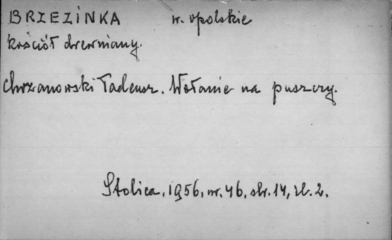 BRZEZINKA w. opolskie
kościół drewniany.
Chrzanowski Tadeusz. Wołanie na puszczy.
Stolica, 1956, nr. 46, str. 14, il. 2.